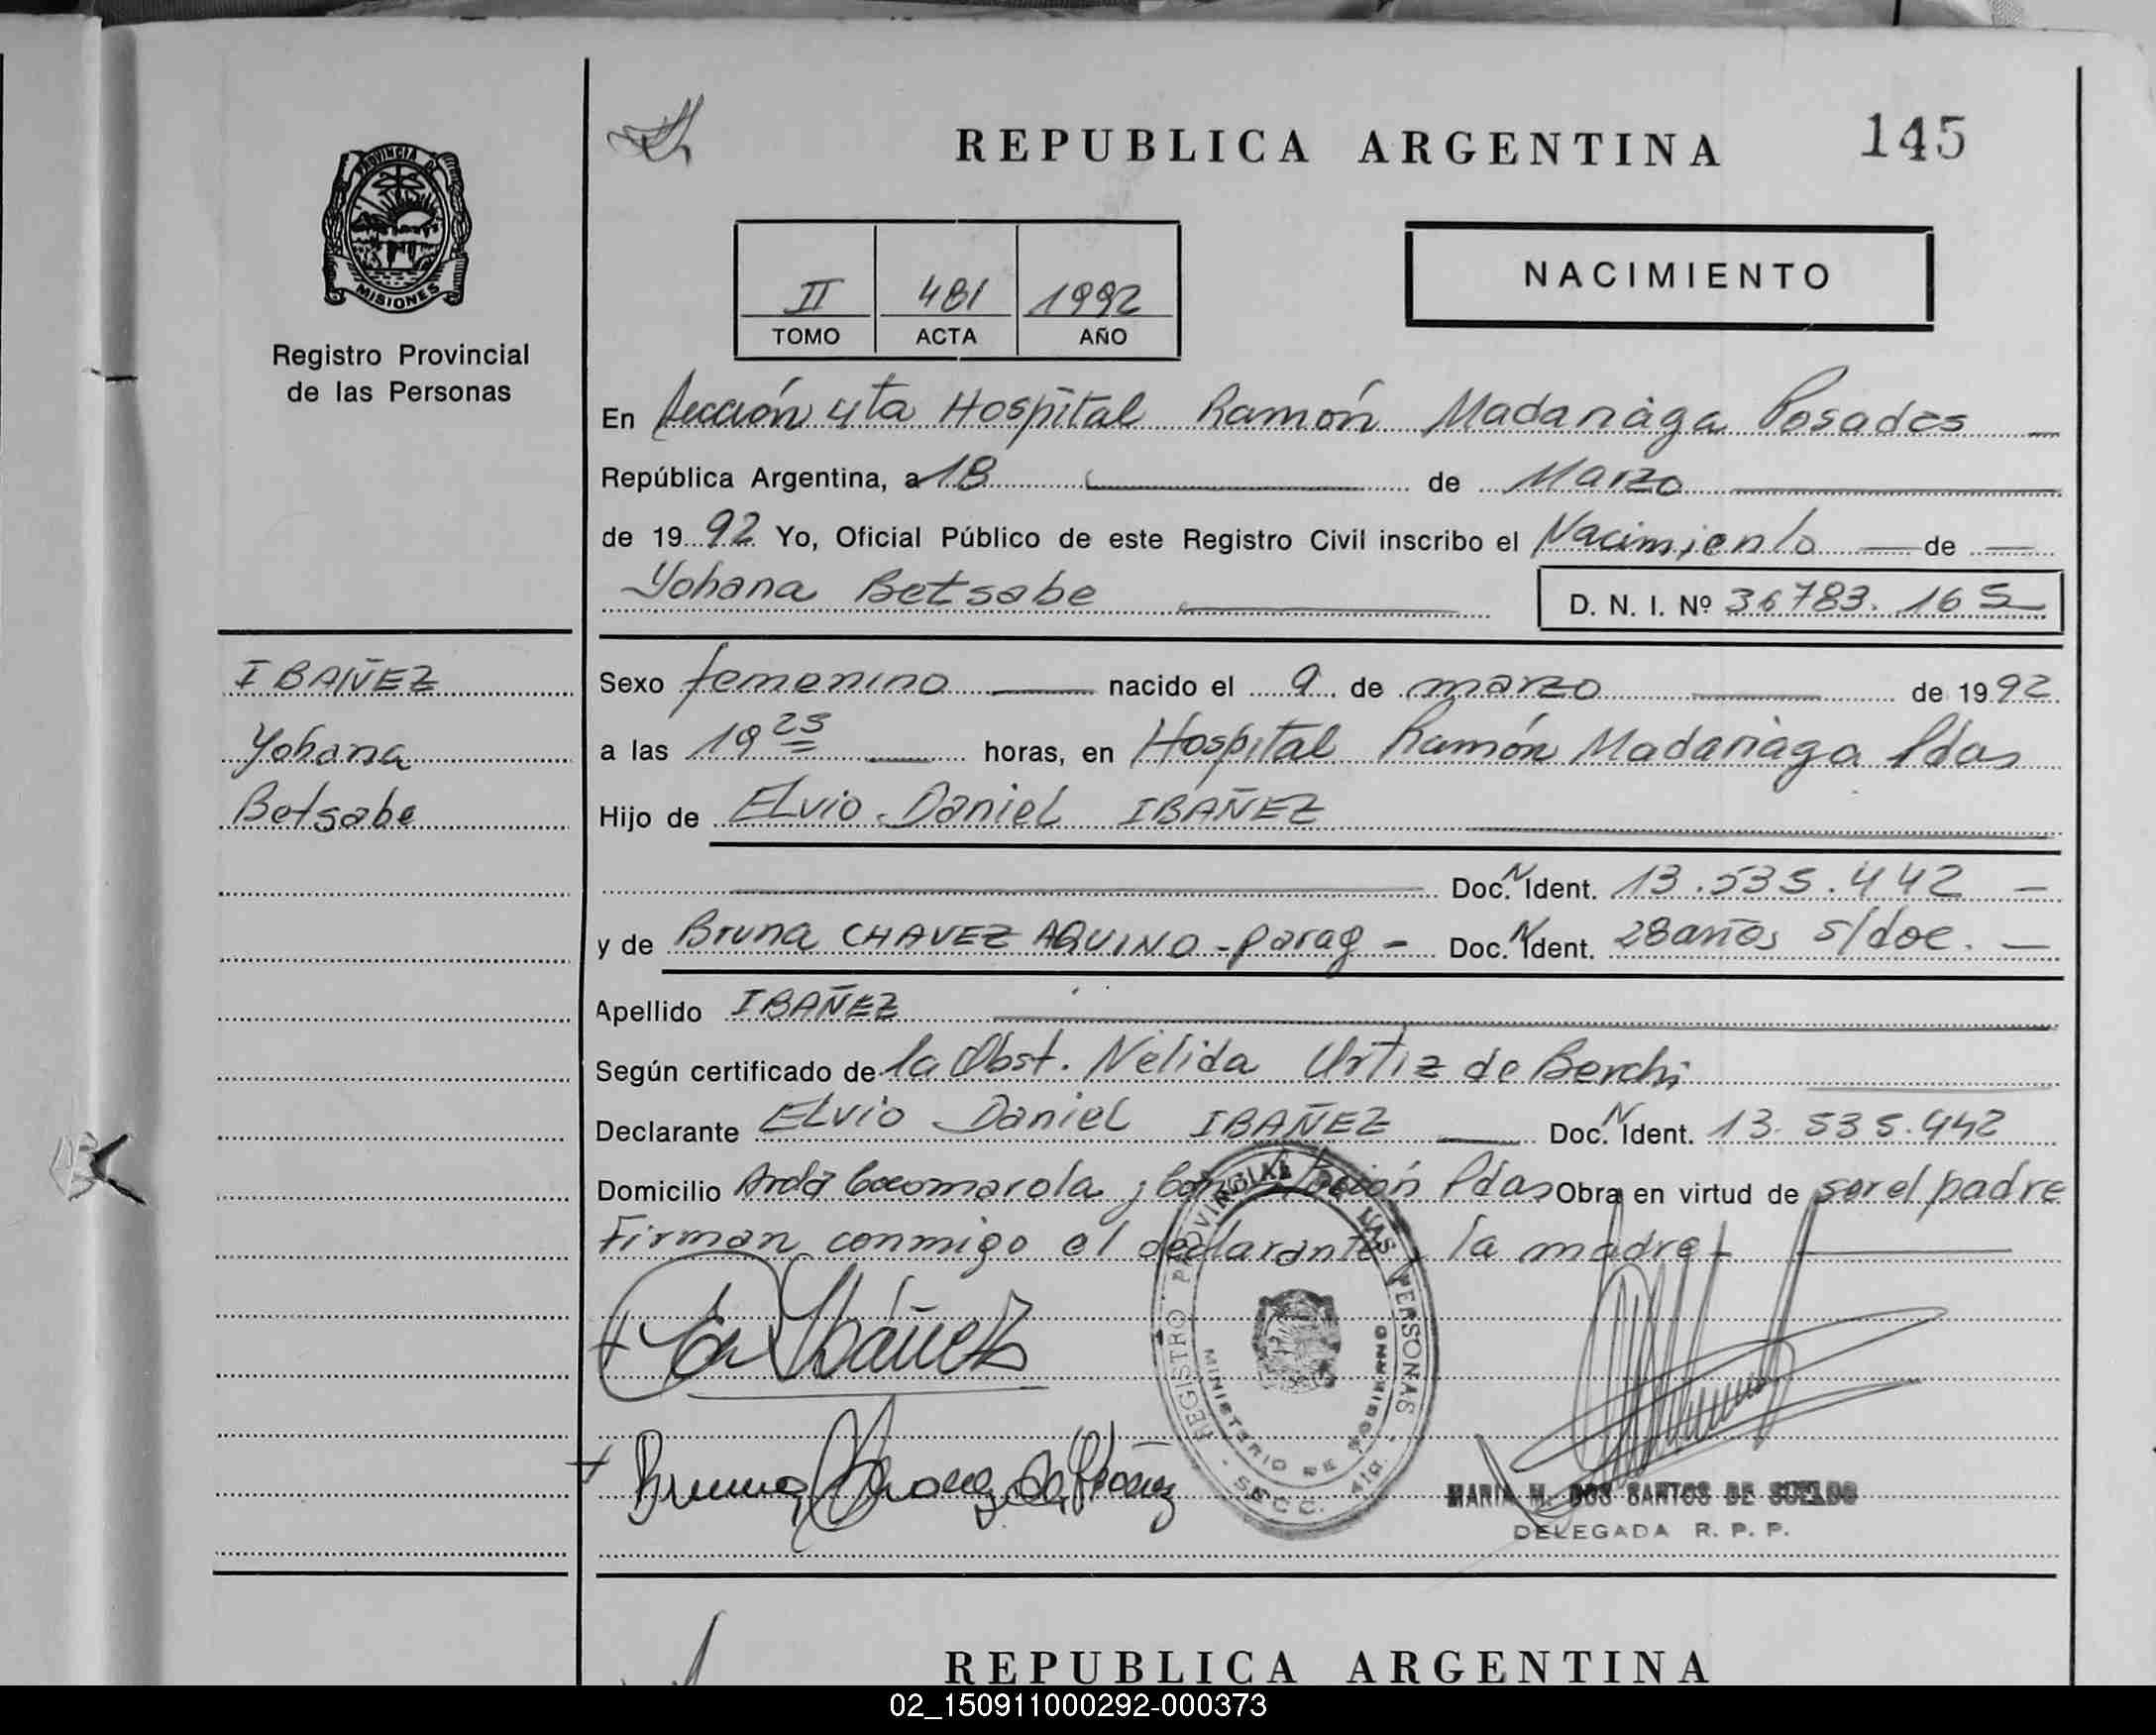 REPUBLICA ARGENTINA 145
PROVINCIA DE
MISIONES
Registro Provincial
de las Personas
II 481 1992
TOMO ACTA AÑO
NACIMIENTO
En Sección 4ta Hospital Ramón Madariaga Posadas —
República Argentina, a 18 de Marzo
de 1992 Yo, Oficial Público de este Registro Civil inscribo el Nacimiento — de —
Yohana Betsabe
D. N. I. Nº 36783.165
IBAÑEZ
Yohana
Betsabe
Sexo femenino nacido el 9 de marzo de 1992
a las 19 25 horas, en Hospital Ramón Madariaga Pdas
Hijo de Elvio Daniel IBAÑEZ
Doc. N Ident. 13.535.442 —
y de Bruna CHAVEZ AQUINO - parag - Doc. N Ident. 28 años s/doc. —
Apellido IBAÑEZ
Según certificado de la Obst. Nélida Urtiz de Berchi
Declarante Elvio Daniel IBAÑEZ Doc. N Ident. 13.535.442
Domicilio Avda Cocomarola y Pdas Obra en virtud de ser el padre
Firman conmigo el declarante y la madre
Ibáñez
Bruna Chavez de Ibañez
REGISTRO PROVINCIAL DE LAS PERSONAS
MINISTERIO DE GOBIERNO
SECC. 4ta.
MARIA M. DOS SANTOS DE SUELDO
DELEGADA R. P. P.
REPUBLICA ARGENTINA
02_150911000292-000373